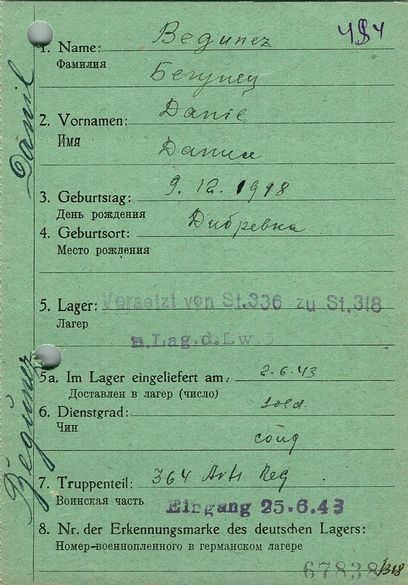 484
1. Name: Begunez
Фамилия Бегунец
2. Vornamen: Daniel
Имя Данил
3. Geburtstag: 9. 12. 1918
День рождения
4. Geburtsort: Дибревка
Место рождения
5. Lager: Versetzt von St.336 zu St.318
Лагер
n.Lag.d.Lw.5
5a. Im Lager eingeliefert am: 2.6.43
Доставлен в лагер (число)
6. Dienstgrad: sold.
Чин солд
7. Truppenteil: 364 Arti Reg
Воинская часть Eingang 25.6.43
8. Nr. der Erkennungsmarke des deutschen Lagers:
Номер-военнопленного в германском лагере
67838/318
Begunez Daniil